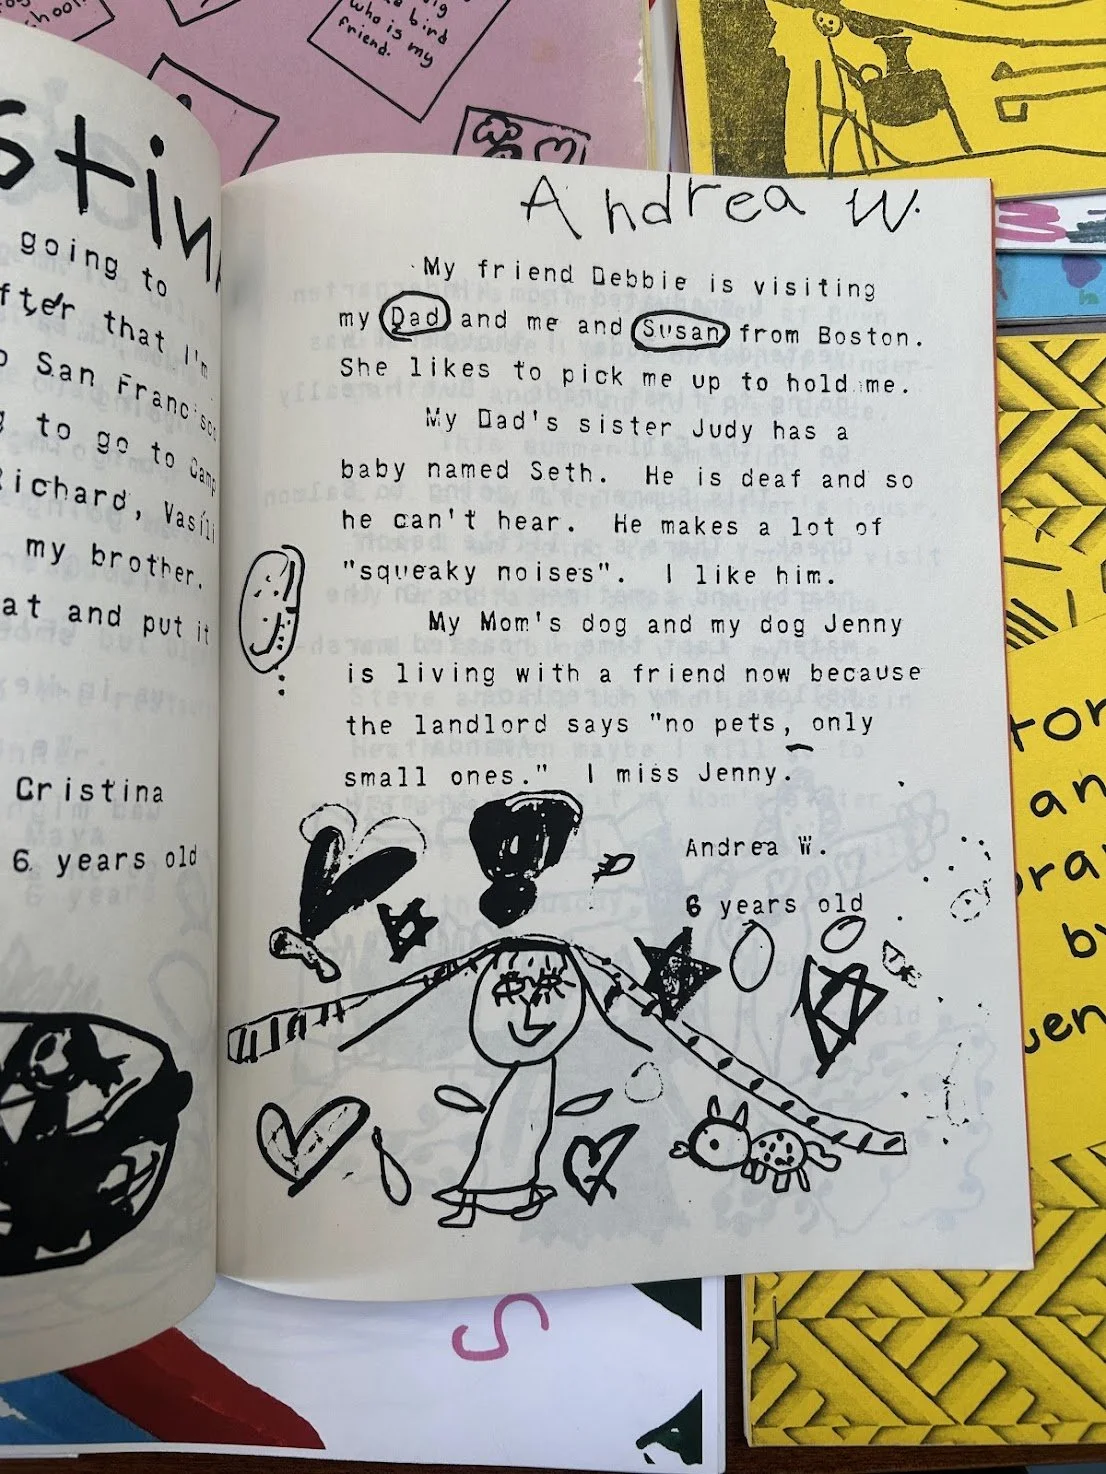 hool
ig
a bird
who is my
friend.
stin
going to
fter that I'm
San Francisco
to go to Camp
Richard, Vasili
my brother.
at and put it
Cristina
6 years old
Andrea W.
My friend Debbie is visiting
my Dad and me and Susan from Boston.
She likes to pick me up to hold me.
My Dad's sister Judy has a
baby named Seth. He is deaf and so
he can't hear. He makes a lot of
"squeaky noises". I like him.
My Mom's dog and my dog Jenny
is living with a friend now because
the landlord says "no pets, only
small ones." I miss Jenny.
Andrea W.
6 years old
an
by
S